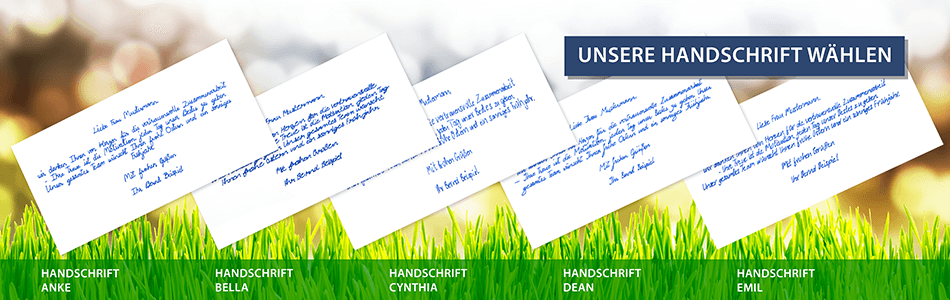 UNSERE HANDSCHRIFT WÄHLEN
Liebe Frau Mustermann
wir danken Ihnen von Herzen für die vertrauensvolle Zusammenarbeit
Ihre Treue ist die Motivation, jeden Tag unser Bestes zu geben
Unser gesamtes Team wünscht Ihnen frohe Ostern und ein sonniges
Frühjahr
Mit frohen Grüßen
Ihr Bernd Beispiel
Frau Mustermann
von Herzen für die vertrauensvolle
Treue ist die Motivation, jeden Tag
Unser gesamtes Team wünscht
Ihnen frohe Ostern und ein sonniges Frühjahr
Mit frohen Grüßen
Ihr Bernd Beispiel
vertrauensvolle Zusammenarbeit
Tag unser Bestes zu geben
Ostern und ein sonniges Frühjahr.
Mit frohen Grüßen
Ihr Bernd Beispiel
Liebe Frau Mustermann
Herzen für die vertrauensvolle Zusammenarbeit
Ihre Treue ist die Motivation, jeden Tag unser Bestes
gesamtes Team wünscht Ihnen frohe Ostern und ein sonniges
Mit frohen Grüßen
Ihr Bernd Beispiel
Liebe Frau Mustermann,
Ihnen von Herzen für die vertrauensvolle Zusammenarbeit
Ihre Treue ist die Motivation, jeden Tag unser Bestes zu geben.
Unser gesamtes Team wünscht Ihnen frohe Ostern und ein sonniges Frühjahr.
Mit frohen Grüßen
Ihr Bernd Beispiel
HANDSCHRIFT
ANKE
HANDSCHRIFT
BELLA
HANDSCHRIFT
CYNTHIA
HANDSCHRIFT
DEAN
HANDSCHRIFT
EMIL